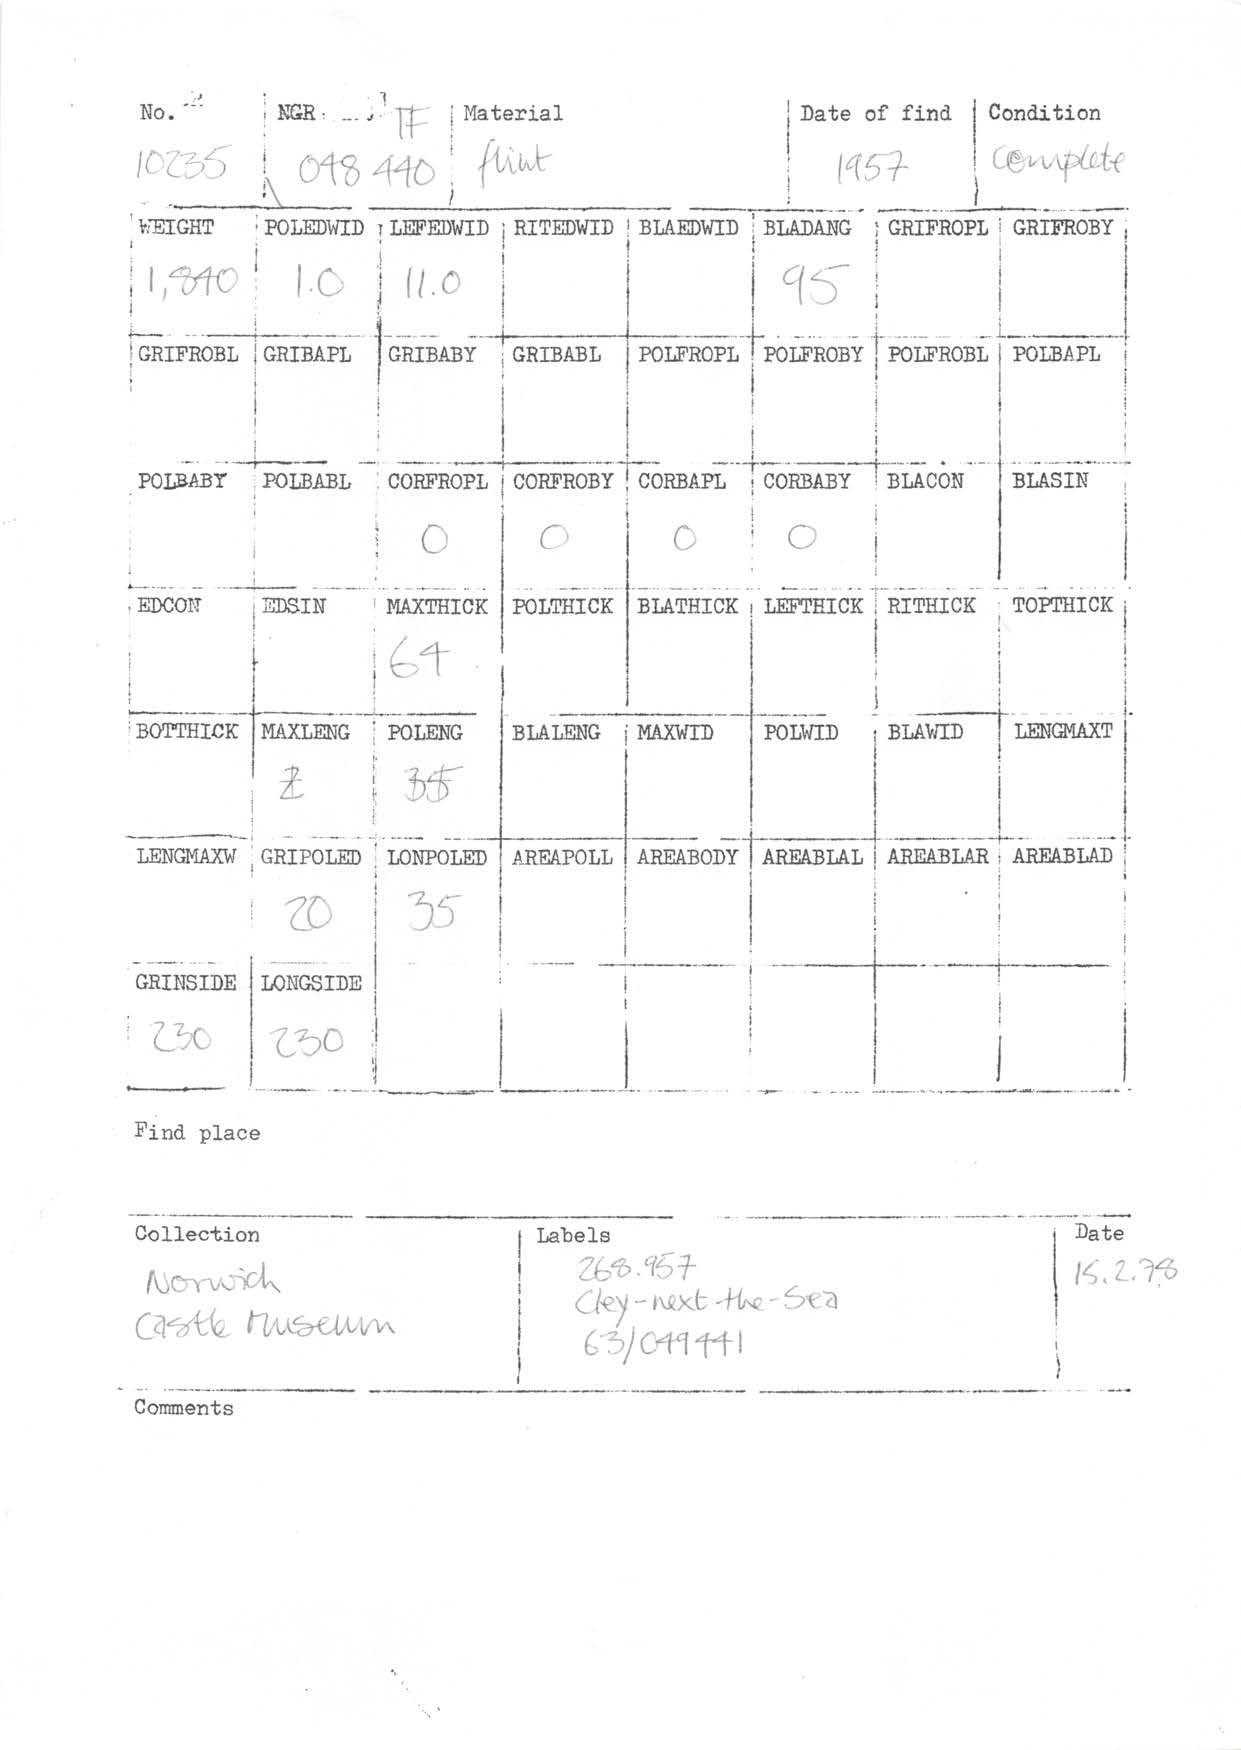 No. NGR TF Material Date of find Condition
10235 048 440 flint 1957 Complete
WEIGHT POLEDWID LEFEDWID RITEDWID BLAEDWID BLADANG GRIFROPL GRIFROBY
1,840 1.0 11.0 95
GRIFROBL GRIBAPL GRIBABY GRIBABL POLFROPL POLFROBY POLFROBL POLBAPL
POLBABY POLBABL CORFROPL CORFROBY CORBAPL CORBABY BLACON BLASIN
0 0 0 0
EDCON EDSIN MAXTHICK POLTHICK BLATHICK LEFTHICK RITHICK TOPTHICK
64
BOTTHICK MAXLENG POLENG BLALENG MAXWID POLWID BLAWID LENGMAXT
35
LENGMAXW GRIPOLED LONPOLED AREAPOLL AREABODY AREABLAL AREABLAR AREABLAD
20 35
GRINSIDE LONGSIDE
230 230
Find place
Collection Labels Date
Norwich 268.957 15.2.78
Castle Museum Cley-next-the-Sea
63/049441
Comments